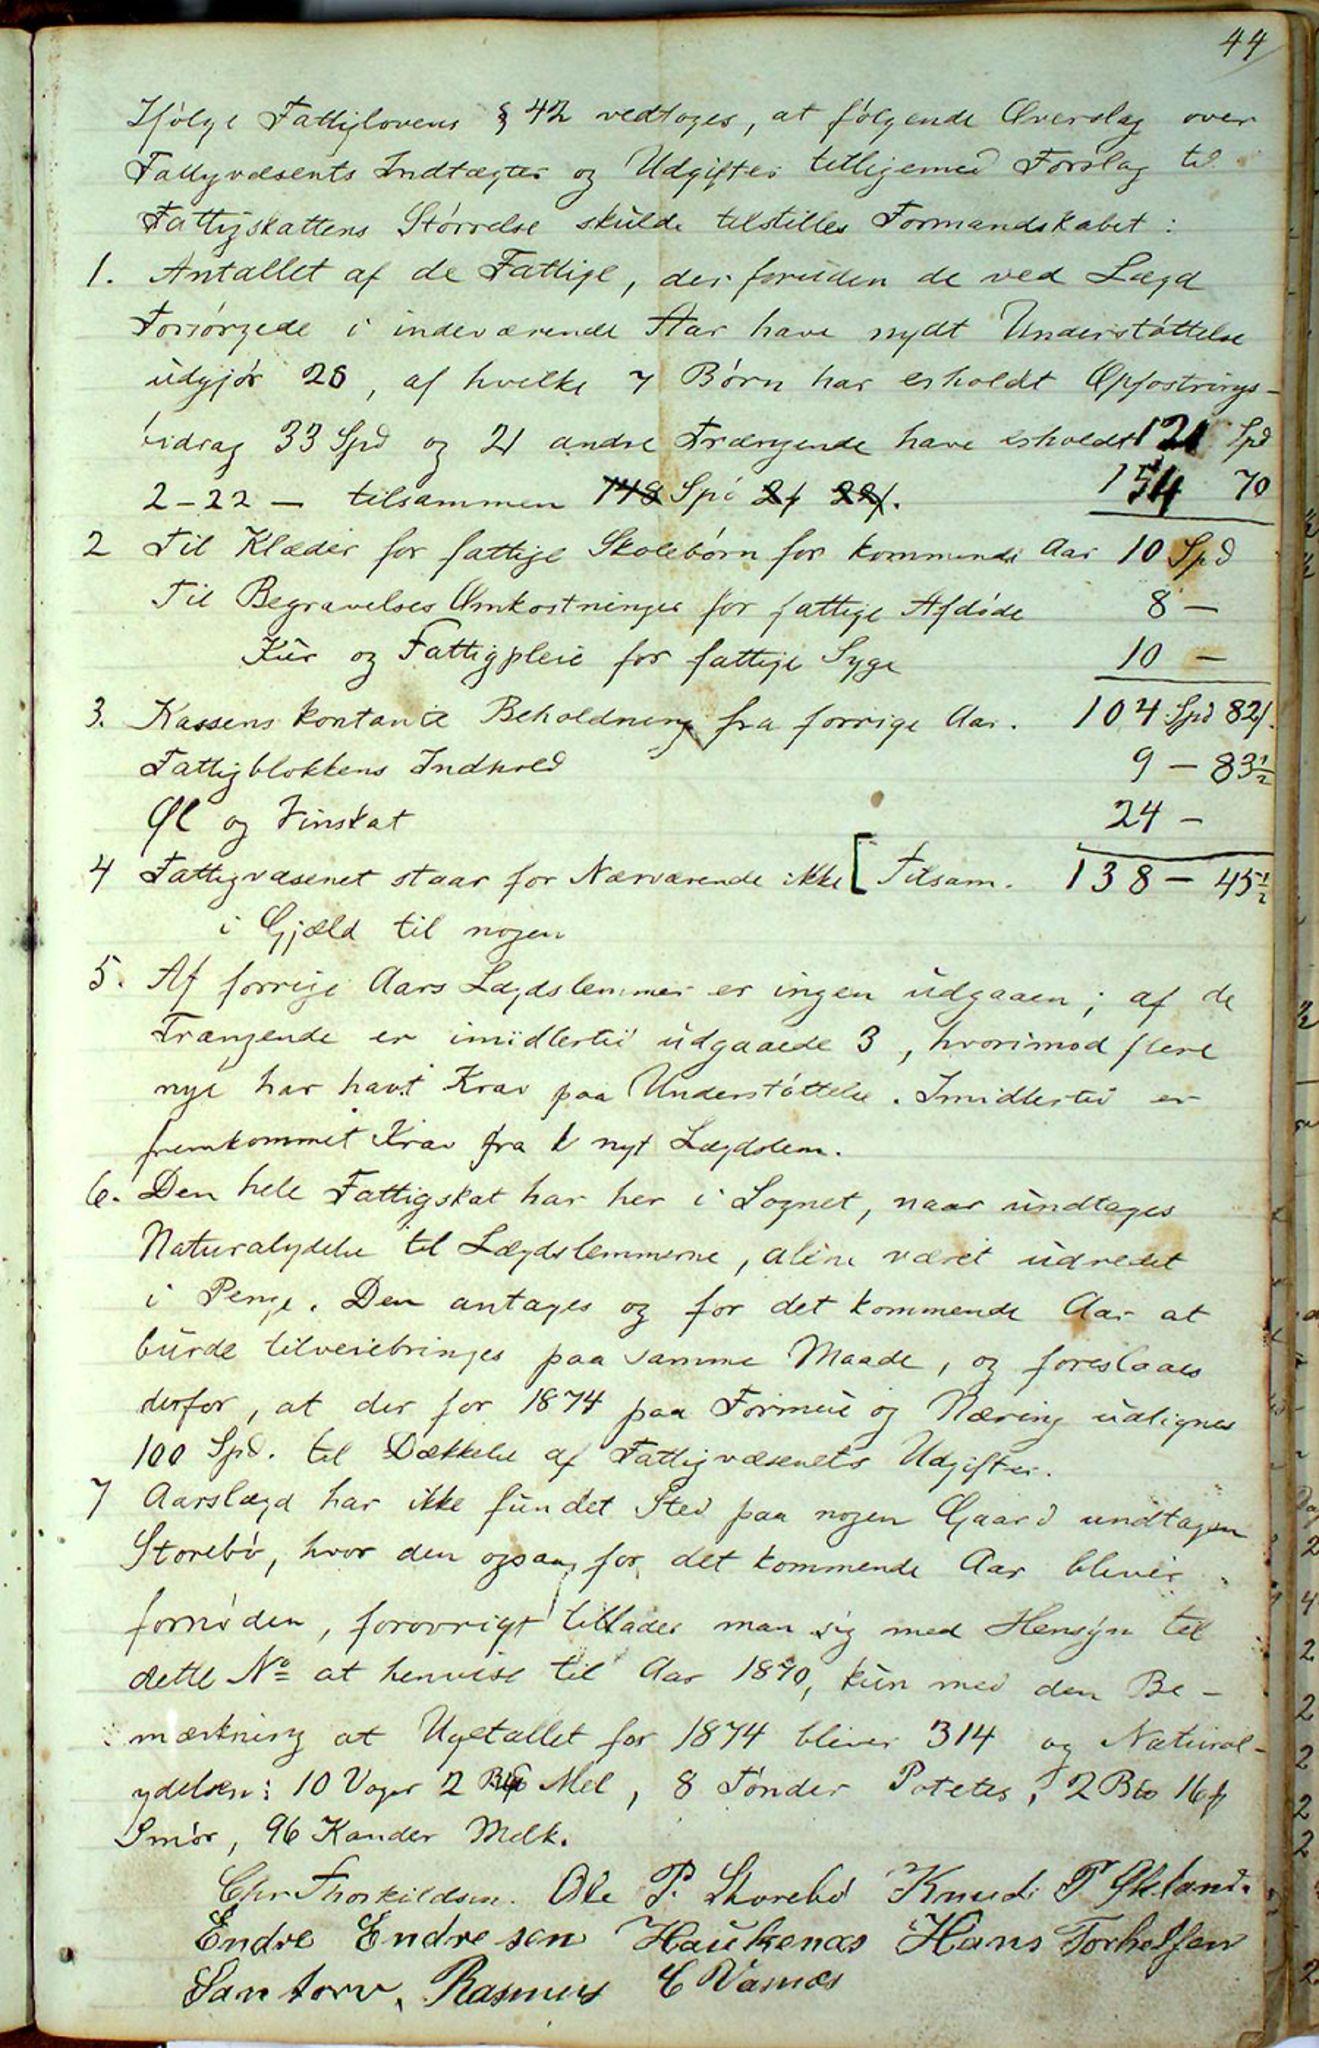 44
Ifølge Fattiglovens § 42 vedtoges, at følgende Overslag over
Fattigvæsents Indtægter og Udgifter tilligemed Forslag til
Fattigskattens Størrelse skulde tilstilles Formandskabet :
1. Antallet af de Fattige, der foruden de ved Lægd
Forsørgede i indeværende Aar have nydt Understøttelse
udgjør 28, af hvilke 7 Børn har erholdt Opfostrings-
bidrag 33 Spd og 21 andre Trængende have erholdt 121 Spd
2-22 — tilsammen 148 Spd 2f 22f. 154 70
2 Til Klæder for fattige Skolebørn for kommende Aar 10 Spd
Til Begravelses Omkostninger for fattige Afdøde 8 —
Kur og Fattigpleie for fattige Syge 10 —
3. Kassens kontante Beholdning fra forrige Aar. 104 Spd 82f.
Fattigblokkens Indhold 9 — 83½
Øl og Vinskat 24 —
4 Fattigvæsenet staar for Nærværende ikke [ Tilsam. 138 — 45½
i Gjæld til nogen
5. Af forrige Aars Lægdslemmer er ingen udgaaen ; af de
Trængende er imidlertid udgaaede 3, hvorimod flere
nye har havt Krav paa Understøttelse. Imidlertid er
fremkommet Krav fra 1 nyt Lægdslem.
6. Den hele Fattigskat har her i Sognet, naar undtages
Naturalydelse til Lægdslemmerne, alene været udredet
i Penge. Den antages og for det kommende Aar at
burde tilveiebringes paa samme Maade, og foreslaaes
derfor, at der for 1874 paa Formue og Næring udlignes
100 Spd. til Dækkelse af Fattigvæsenets Udgifter.
7 Aarslægd har ikke fundet Sted paa nogen Gaard undtagen
Storebø, hvor den ogsaa for det kommende Aar bliver
fornøden, forøvrigt tillader man sig med Hensyn til
dette No at henvise til Aar 1870, kun med den Be-
mærkning at Ugetallet for 1874 bliver 314 og Natural-
ydelsen: 10 Voger 2 Mel, 8 Tønder Poteter, 2 16
Smør, 96 Kander Melk.
Chr Thorkildsen. Ole P. Storebø Knud P Økland.
Endre Endresen Haukenæs Hans Torkelsen
Santorv. Rasmus E Vasnæs